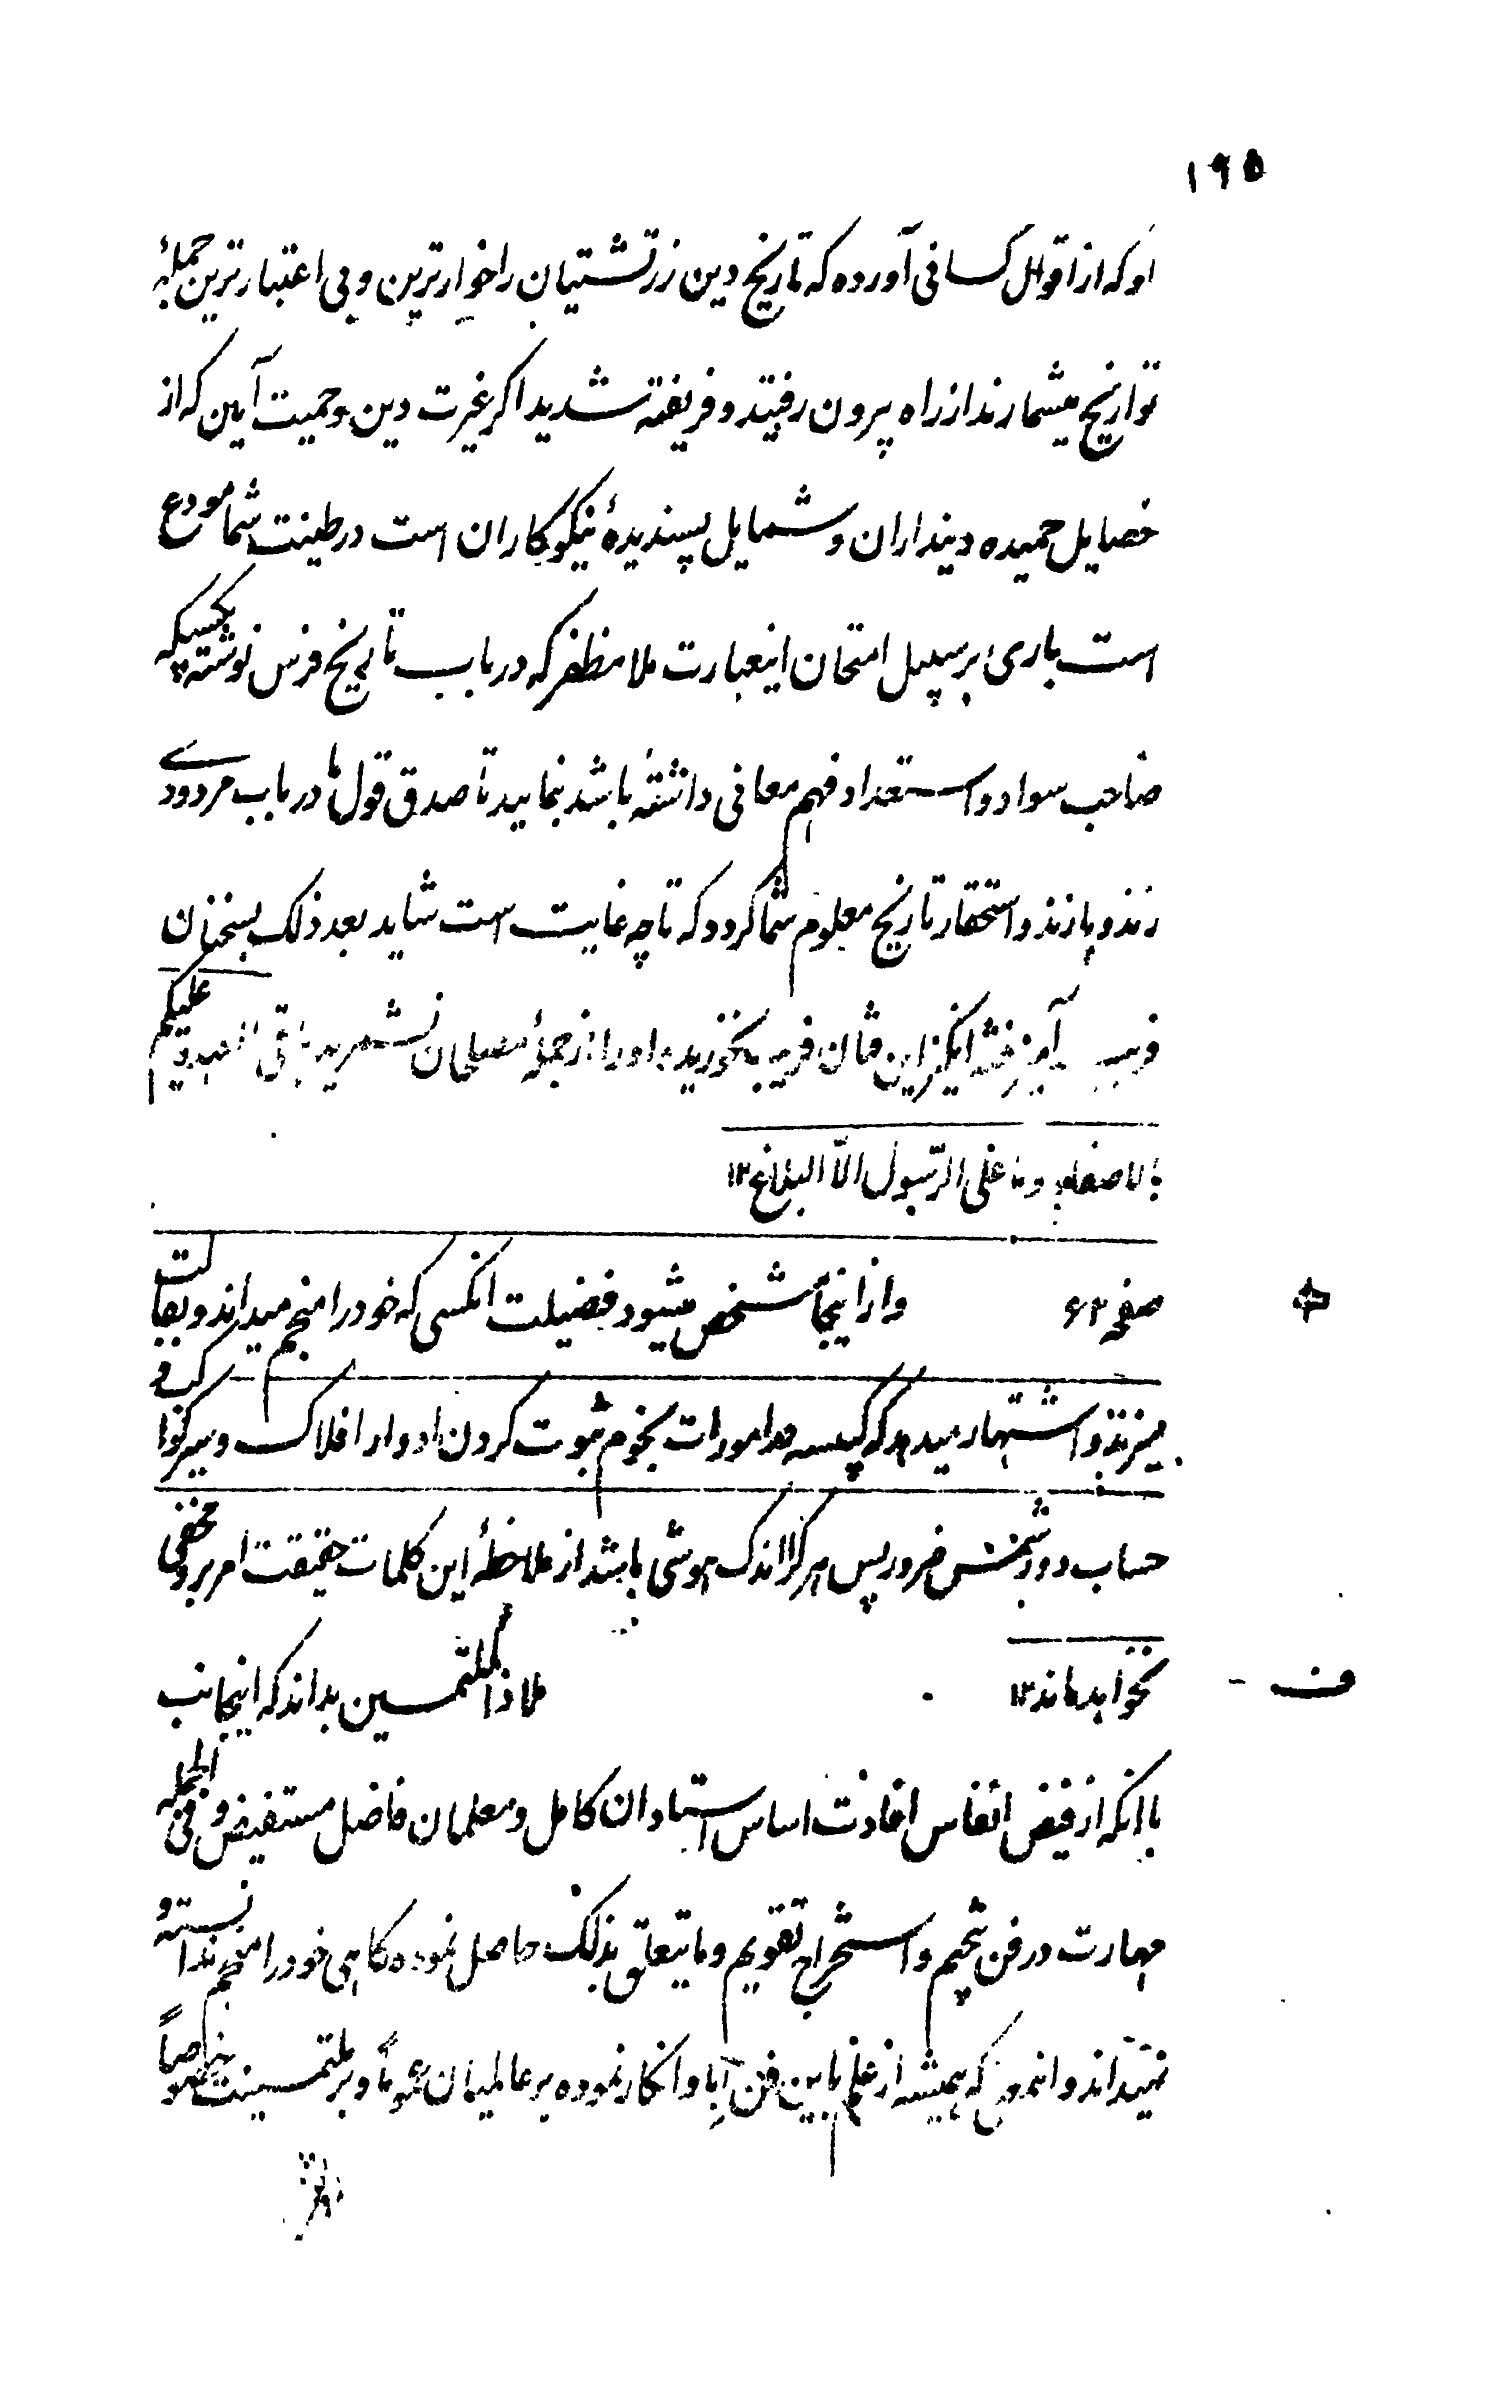 ۱۹۵
او که از اقوال کسانی آورده که تاریخ دین زرتشتیان را خوارترین و بی اعتبارترین جمله
تواریخ میشمارند از راه بیرون رفتید و فریفته شدید اکر غیرت دین و حمیت آیین که از
خصایل حمیده دینداران و شمایل پسندیدهٔ نیکوکاران است در طینت شما مودع
است باری بر سبیل امتحان اینعبارت ملا مظفر که در باب تاریخ فرس نوشته بکسیکه
صاحب سواد و استعداد فهم معانی داشته باشد بنمایید تا صدق قول ما در باب مردودی
زند و پازند و استحقار تاریخ معلوم شما کردد که تا چه غایت است شاید بعد ذلک بسخنان
فریب آمیز فتنه انکیز این فریب نخورید و او را از جملهٔ معلمان نشمرید باقی علیکم
بالاصغاء و ما علی الرسول الّا البلاغ ۱۲
صفحه ۶۲ وازاینجا مشخص میشود فضیلت انکسی که خود را منجم میداند و بقالت
میزند و اشتهار میدهد که کبیسه در امورات نجوم ثبوت کردن ادوار افلاک و سیر کواکب و
حساب دور شمس ضرور پس هر کرا اندک هوشی باشد از ملاحظهٔ این کلمات حقیقت امر برو مخفی
ف - نخواهد ماند ۱۲ ملاذ الملتمسین بداند که اینجانب
با انکه از فیض انفاس افادت اساس استادان کامل و معلمان فاضل مستفیض و فی الجمله
مهارت در فن تنجیم و استخراج تقویم و ما یتعلق بذلک حاصل نموده کاهی خود را منجم ندانسته و
نمیداند و همیشه از علم باین فن اِبا و انکار نموده بر عالمیان عموماً و بر ملتمسین خصوصاً